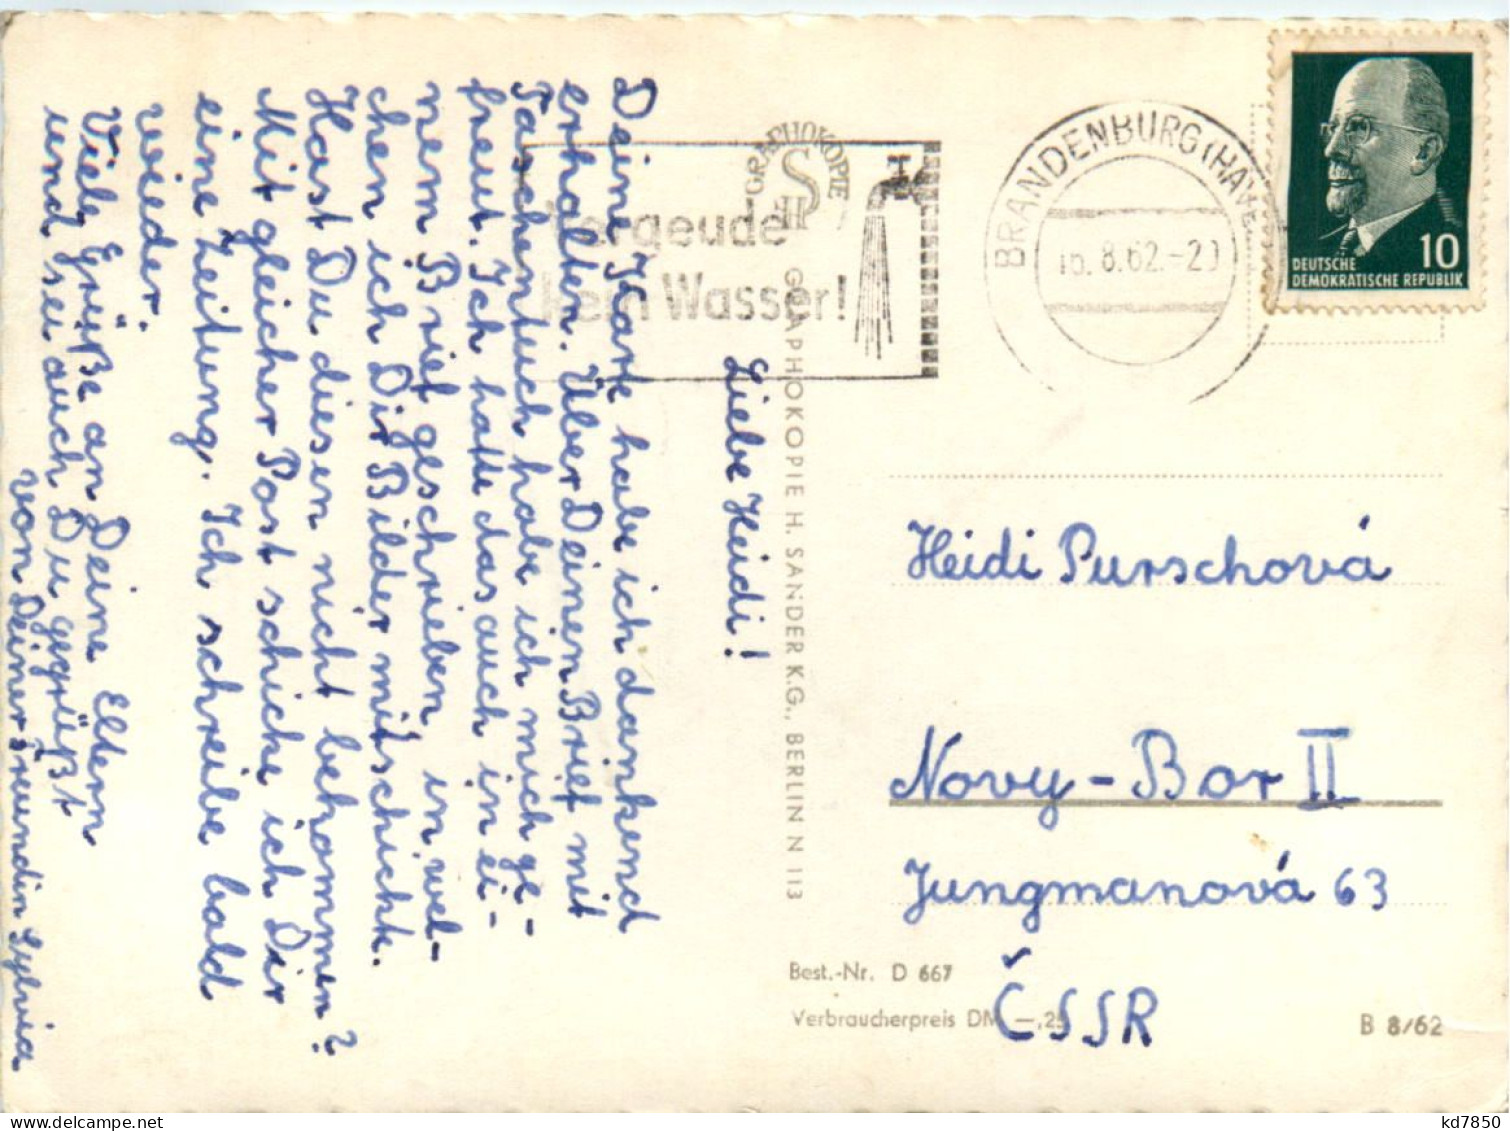 Liebe Heidi!
Deine Karte habe ich dankend
erhalten. Über Deinen Brief mit
Taschentuch habe ich mich ge-
freut. Ich hatte das auch in ei-
nem Brief geschrieben, in wel-
chen ich Dir Bilder mitschickte.
Hast Du diesen nicht bekommen?
Mit gleicher Post schicke ich Dir
eine Zeitung. Ich schreibe bald
wieder.
Viele Grüße an Deine Eltern
und sei auch Du gegrüßt
von Deiner Freundin Sylvia
GRAPHOKOPIE
HS
Vergeude
kein Wasser!
GRAPHOKOPIE H. SANDER KG., BERLIN N 113
BRANDENBURG (HAVEL
16.8.62.-20
10
DEUTSCHE
DEMOKRATISCHE REPUBLIK
Heidi Purschová
Novy-Bor II
Jungmanová 63
ČSSR
Best.-Nr. D 667
Verbraucherpreis DM —,25
B 8/62
kd7850